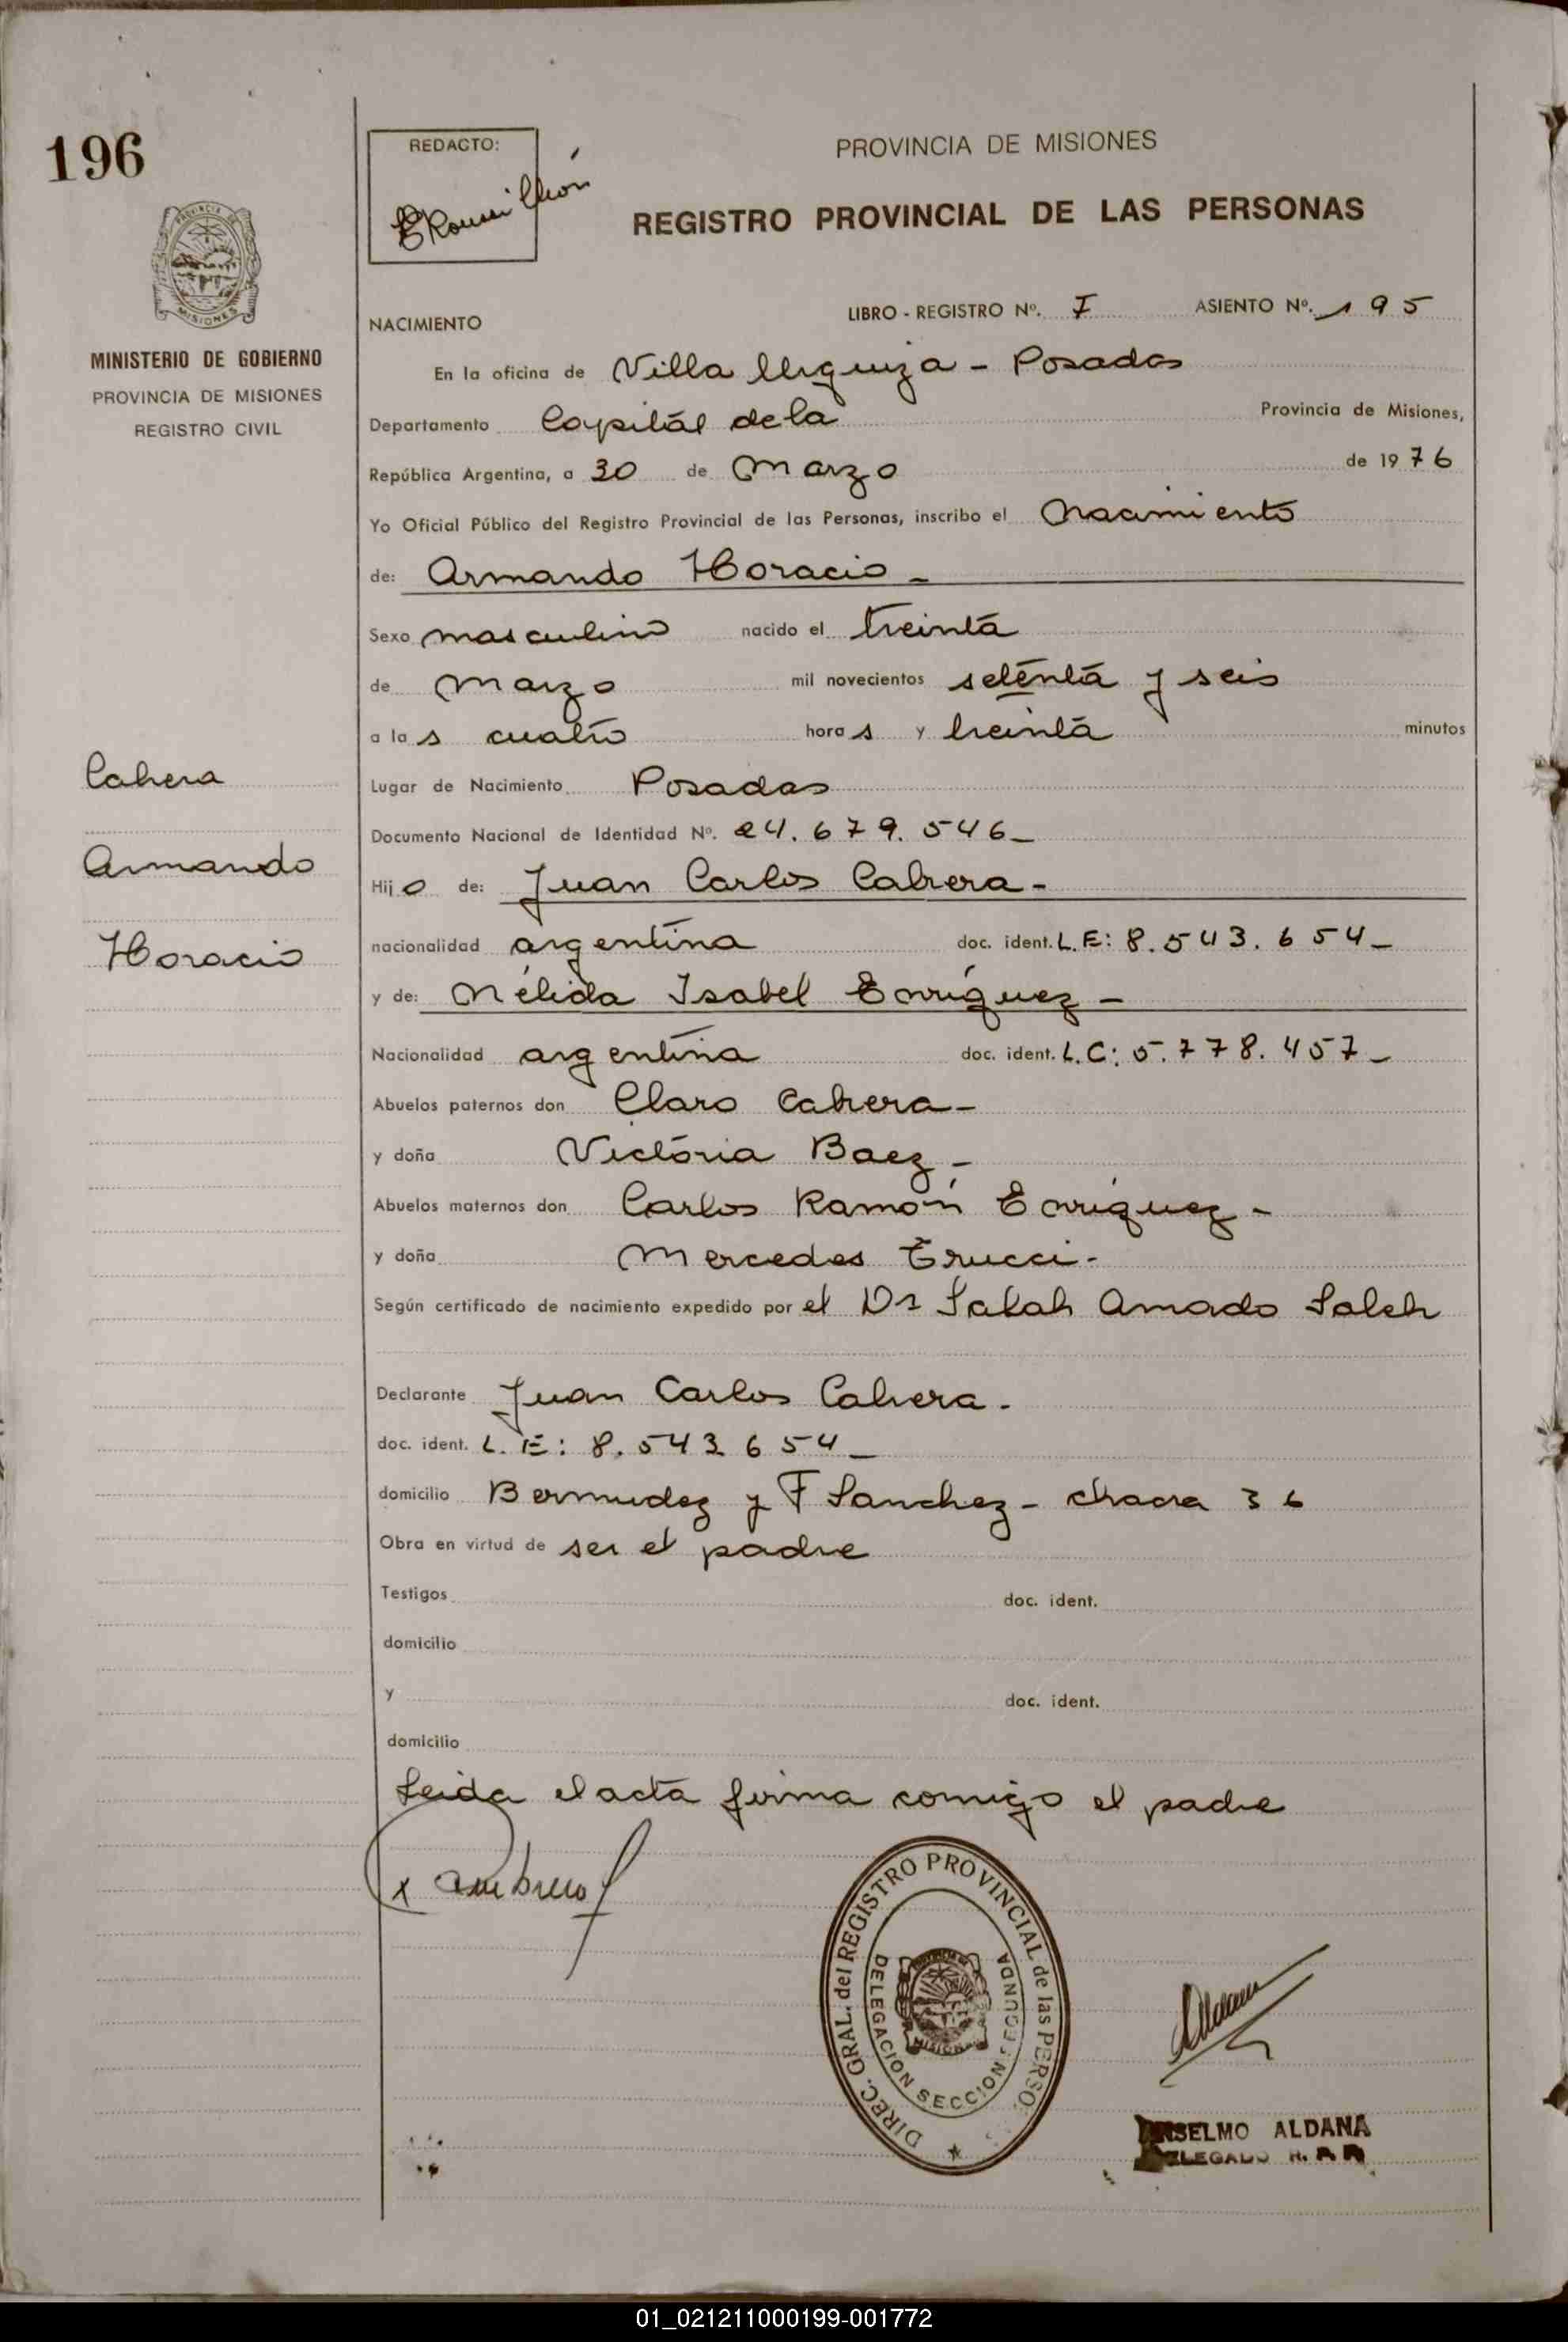 196
REDACTO:
PROVINCIA DE MISIONES
REGISTRO PROVINCIAL DE LAS PERSONAS
PROVINCIA DE
MISIONES
MINISTERIO DE GOBIERNO
PROVINCIA DE MISIONES
REGISTRO CIVIL
NACIMIENTO LIBRO - REGISTRO Nº. I ASIENTO Nº. 195
En la oficina de Villa Urquiza - Posadas
Departamento Capital de la Provincia de Misiones,
República Argentina, a 30 de Marzo de 1976
Yo Oficial Público del Registro Provincial de las Personas, inscribo el Nacimiento
de: Armando Horacio -
Sexo masculino nacido el treinta
de Marzo mil novecientos setenta y seis
a las cuatro horas y treinta minutos
Lugar de Nacimiento Posadas
Documento Nacional de Identidad Nº. 24.679.546-
Hijo de: Juan Carlos Cabrera -
nacionalidad argentina doc. ident. L.E: 8.543.654-
y de: Nélida Isabel Enríquez -
Nacionalidad argentina doc. ident. L.C: 5.778.457-
Abuelos paternos don Claro Cabrera -
y doña Victória Baez -
Abuelos maternos don Carlos Ramón Enríquez -
y doña Mercedes Trucci -
Según certificado de nacimiento expedido por el Dr Salah Amado Saleh
Declarante Juan Carlos Cabrera.
doc. ident. L.E: 8.543 654-
domicilio Bermudez y F Sanchez - chacra 36
Obra en virtud de ser el padre
Testigos doc. ident.
domicilio
y doc. ident.
domicilio
Leida el acta firma comigo el padre
Cabrera
Armando
Horacio
x
DIREC. GRAL. del REGISTRO PROVINCIAL de las PERSO.
DELEGACION SECCION SEGUNDA
Aldana
ANSELMO ALDANA
DELEGADO
01_021211000199-001772